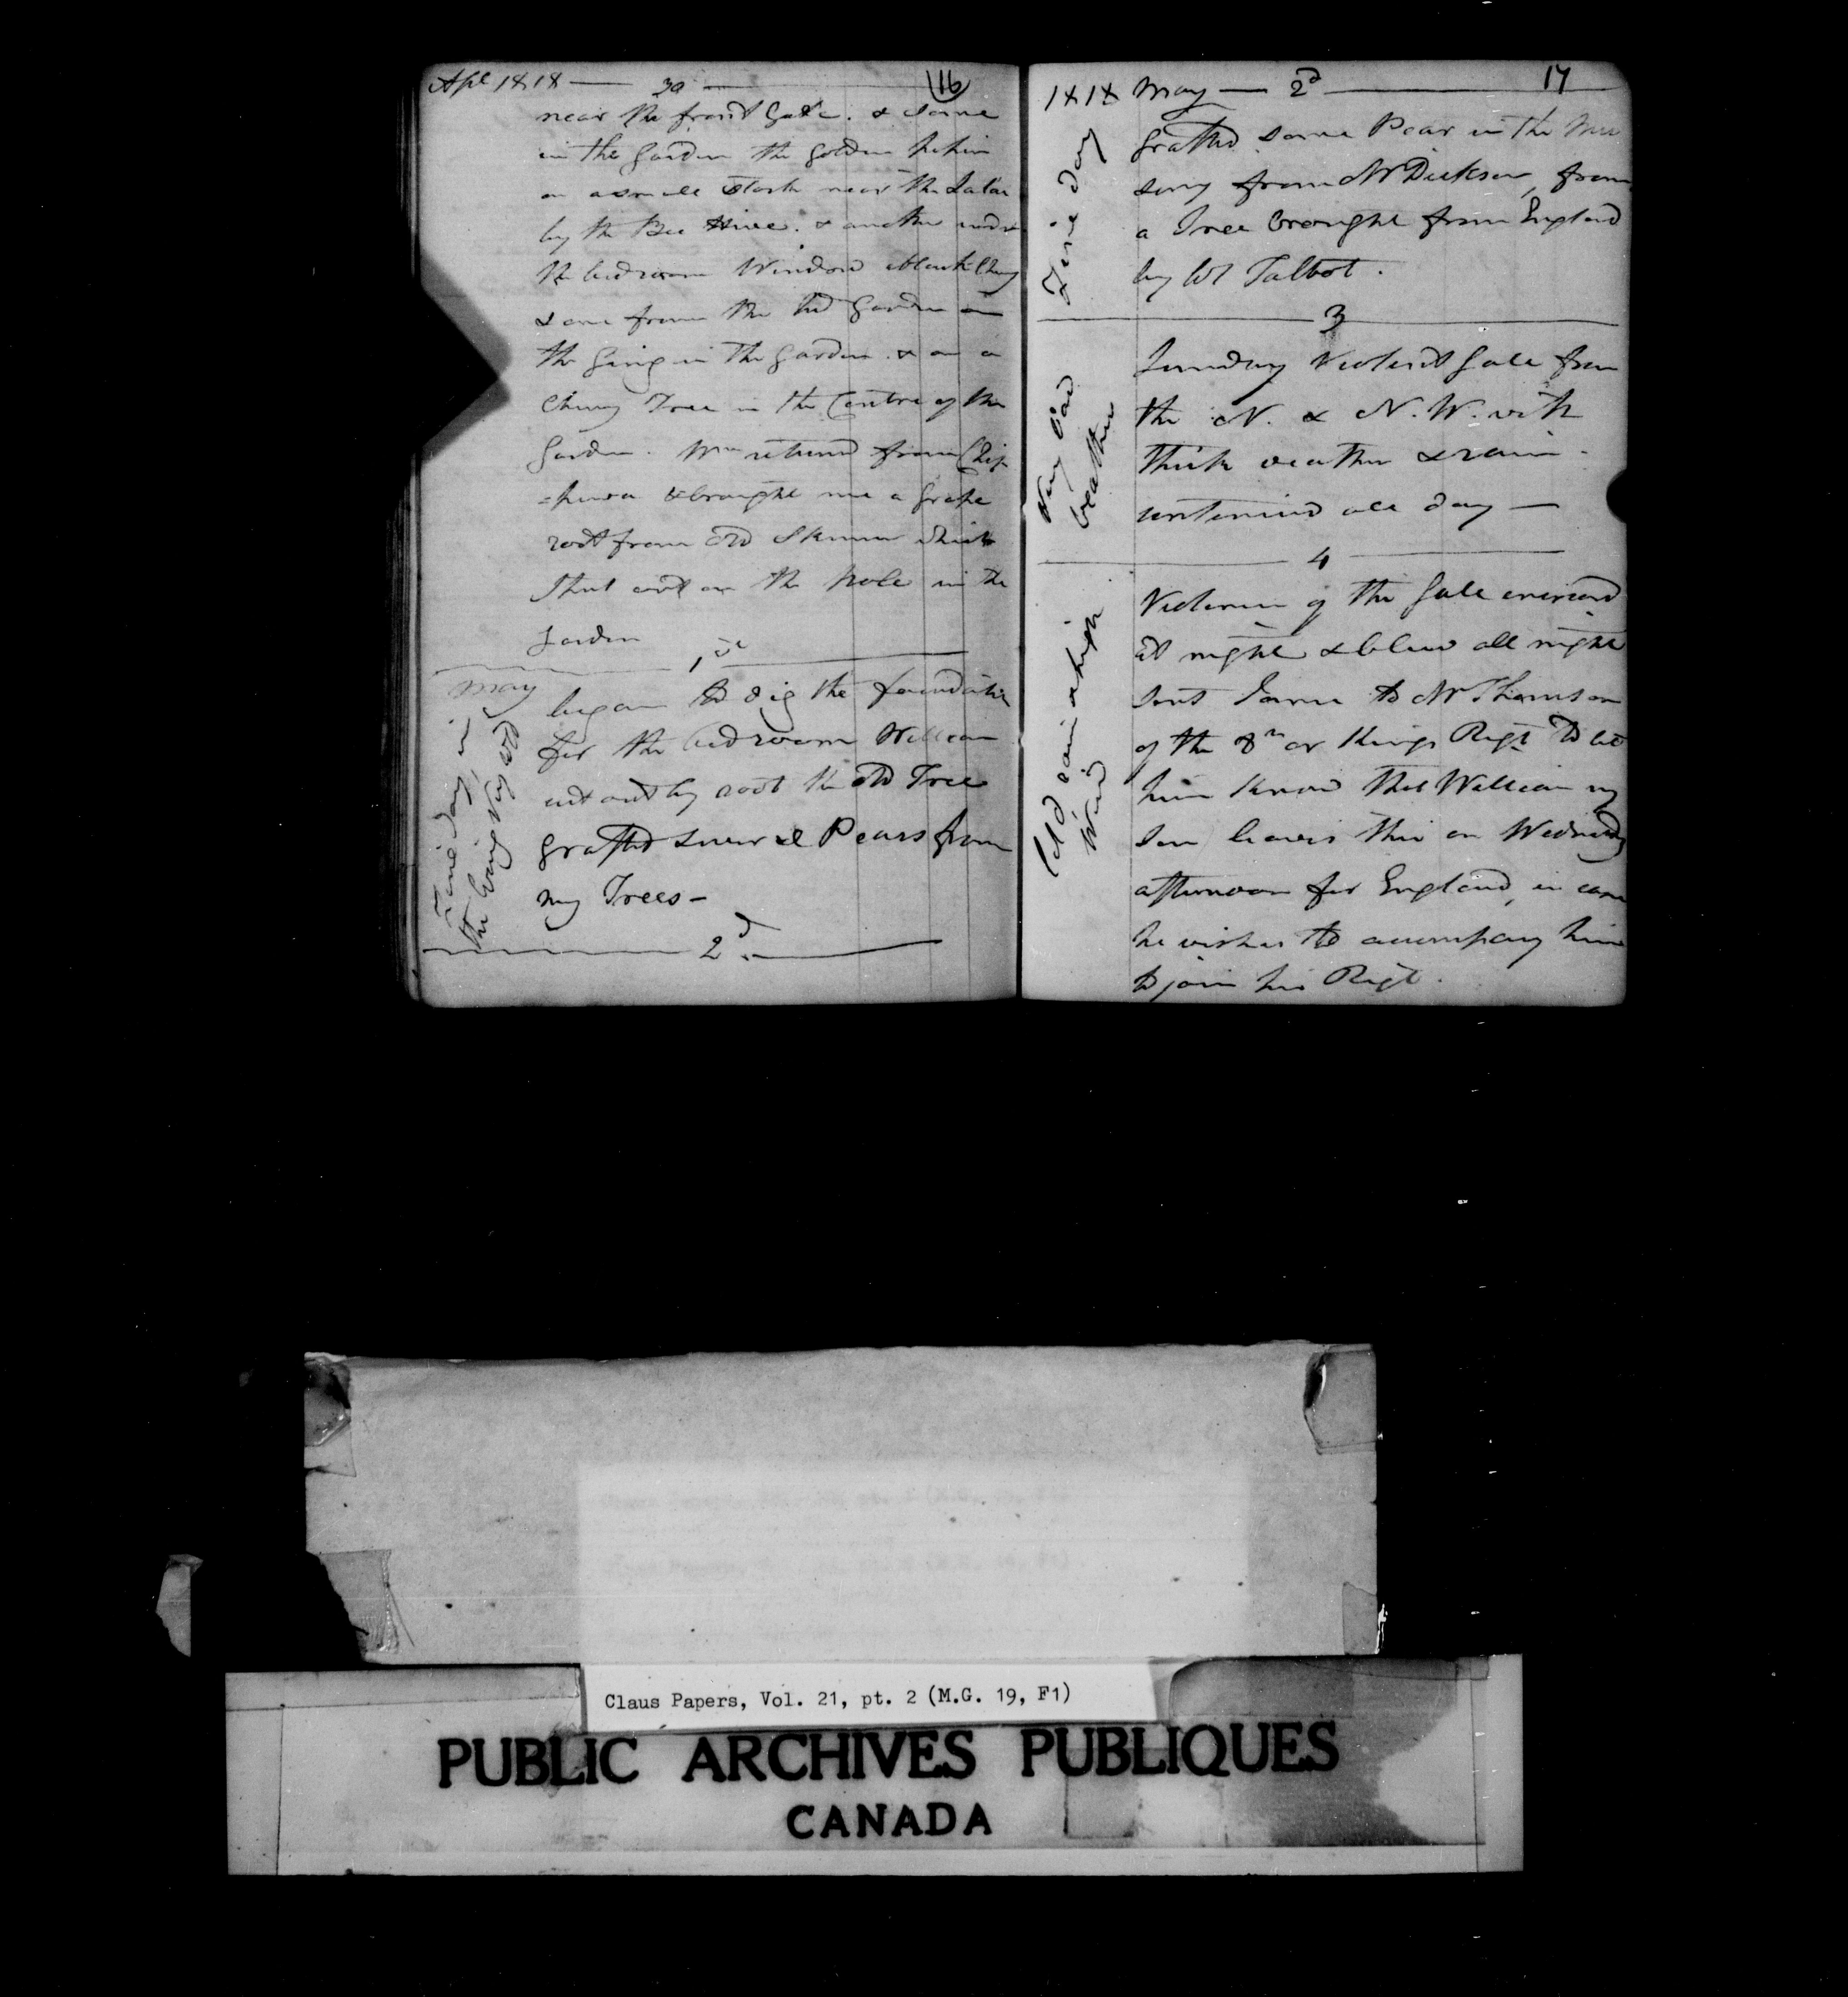 Apl 1818 — 30 —
16
near the front Gate. & some
in the Garden the Golden Pipin
on a small Stock near the
by the Bee Hive. & another under
the bedroom Window black Cherry
& one from the Garden on
the in the Garden. & on a
Cherry Tree in the Centre of the
Garden. Wm returned from Chip
=pewa & brought me a Grape
root from Old Skinner which
I put out on the hole in the
Garden
1st
May
Fine day, in
the Eving Very cold
began to dig the foundation
for the bedroom William
cut out by root the old Tree
grafted several Pears from
my Trees —
2d
1818 May — 2d — 17
Fine day
grafted some Pear in the Nur
sery from Mr Dickson, from
a Tree brought from England
by Col Talbot.
3
Very bad
weather
Sunday Violent Gale from
the N. & N.W. with
thick weather & rain.
continued all day —
4
Cold rain & high
Wind
Violence of the Gale increased
at night & blew all night
sent to Mr Thomson
of the 8th or Kings Regt to let
him know that William my
Son leaves this on Wednesday
afternoon for England, in case
he wishes to accompany him
to join his Regt.
Claus Papers, Vol. 21, pt. 2 (M.G. 19, F1)
PUBLIC ARCHIVES PUBLIQUES
CANADA